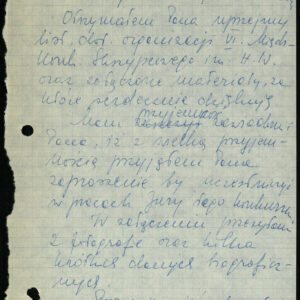 Otrzymałem Pana uprzejmy
list, dot. organizacji VI. Między.
Konk. Skrzypcowego im. H. W.
oraz załączone materiały, za
które serdecznie dziękuję
przyjemność
Mam zawiadomić
Pana, iż z wielką przyjem-
nością przyjąłem Pana
zaproszenie by uczestniczyć
w pracach Jury tego konkursu.
W załączeniu przesyłam
2 fotografie oraz kilka
krótkich danych biograficz-
nych.